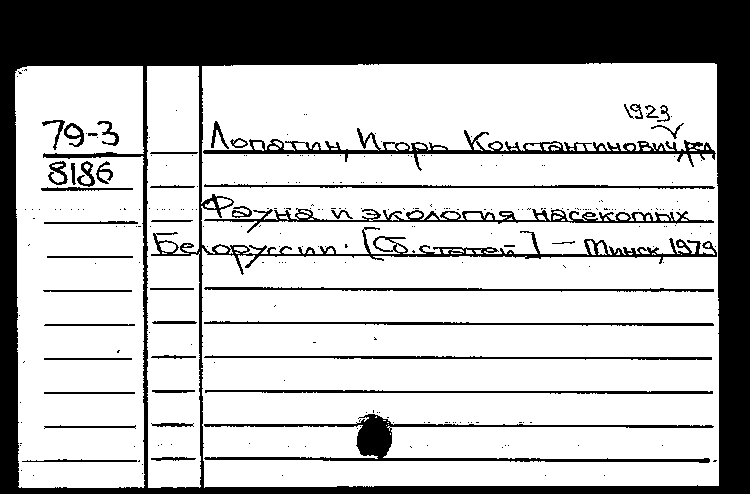 1923
79-3 Лопатин, Игорь Константинович, ред.
8186
Фауна и экология насекомых
Белоруссии. [Сб. статей] — Минск, 1979